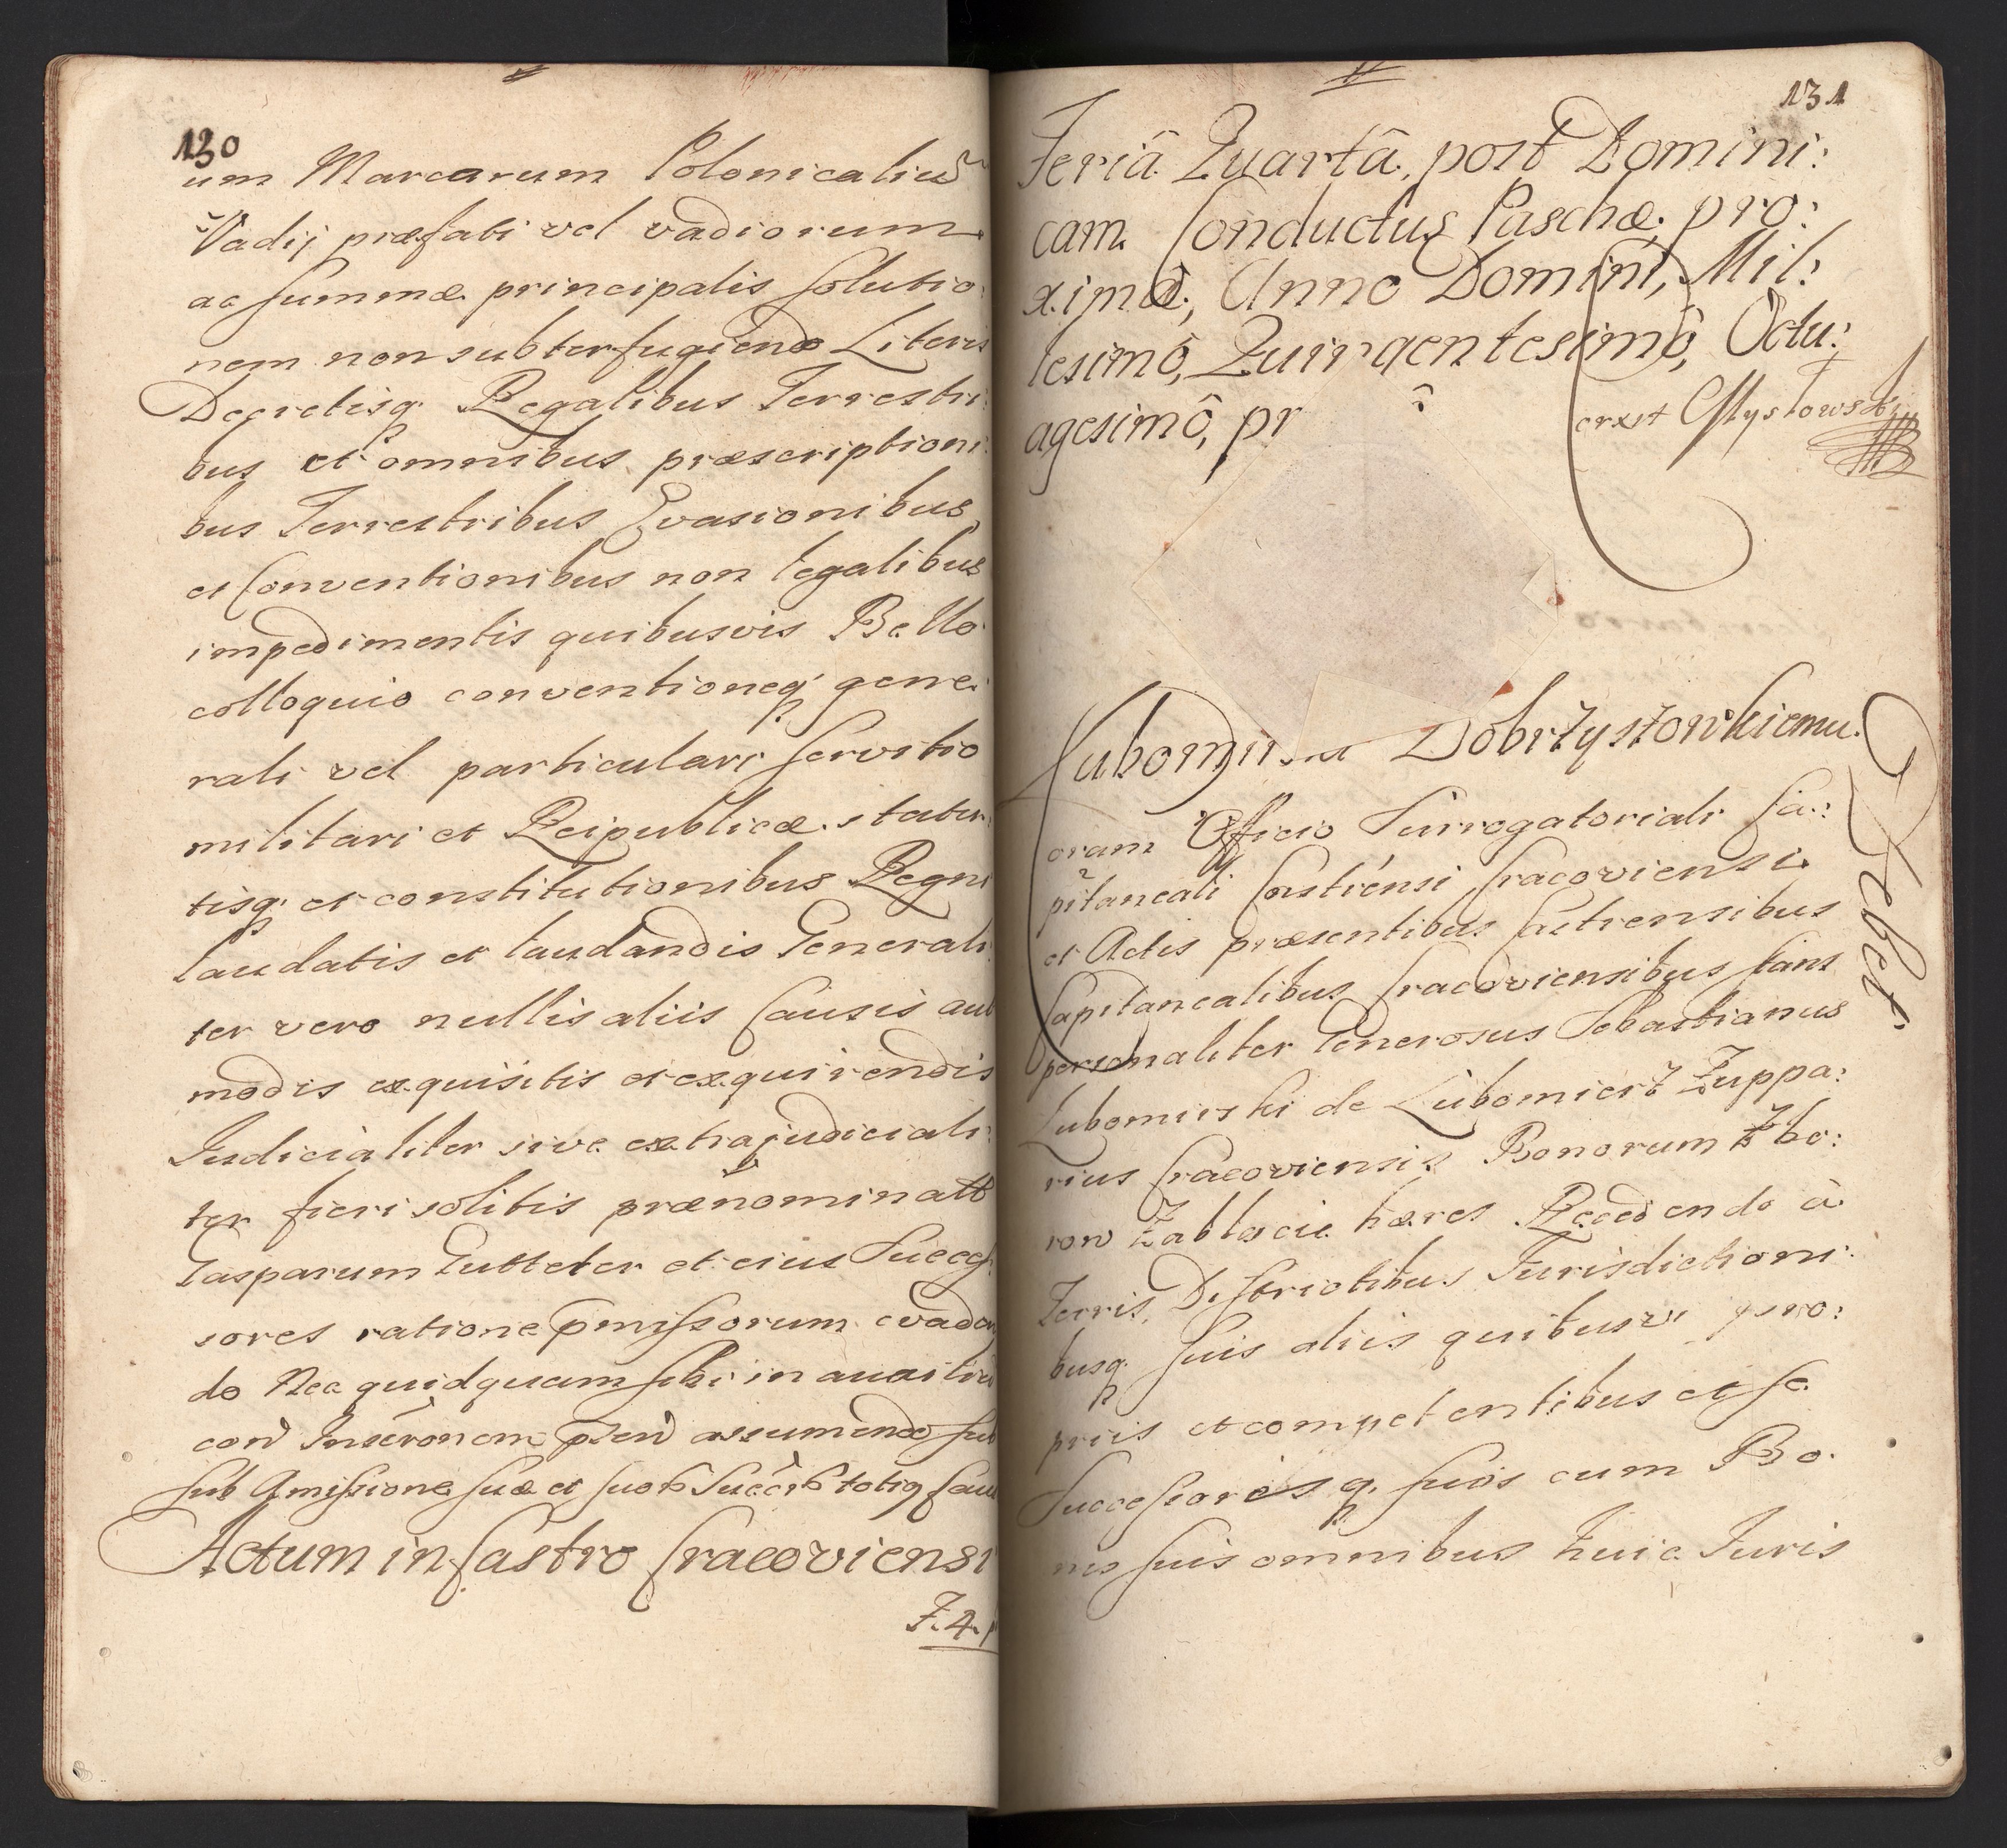 130
um Marcarum Polonicalium
Vadij præfati vel vadiorum
ac summæ principalis solutio
nem non subterfugiendo Literis
Decretisq Regalibus Terrestri:
bus et omnibus præscriptioni:
bus Terrestribus Evasionibus
et Conventionibus non legalibus
impedimentis quibusvis Bello
colloquio conventioneq gene:
rali vel particulari servitio
militari et Reipublicæ statu:
tisq et constitutionibus Regni
laudatis et laudandis Generali:
ter vero nullis aliis Causis aut
modis exquisitis et exquirendis
Judicialiter sive extrajudiciali:
ter fieri solitis prænominatt
Gasparum Gutteter et eius Succes:
sores ratione pmissorum evaden
do Nec quidquam sibi in
Insćronem assumendo sub
sub Amissione suæ et totiq Cau
Actum in Castro Cracoviensi
F. 4. p
131
Feriâ Quartâ, post Domini:
cam Conductus Paschæ pro:
ximâ, Anno Domini, Mil:
lesimô, Quingentesimô, Octu:
agesimô, pr
erxit Mysłowski
Lubomir Dobrzyszowkiemu.
Debet
Coram Officio Surrogatoriali Ca:
pitaneali Castrensi Cracoviensi
et Actis præsentibus Castrensibus
Capitanealibus Cracoviensibus stans
personaliter Generosus Sebastianus
Lubomirski de Lubomierz Zuppa:
rius Cracoviensis Bonorum Zbo:
row Zablocie hæres Recedendo à
Terris, Districtibus Jurisdictioni:
busq suis aliis quibusvi pro:
priis et competentibus et se
Successoresq suos cum Bo.
nis suis omnibus huic Juris